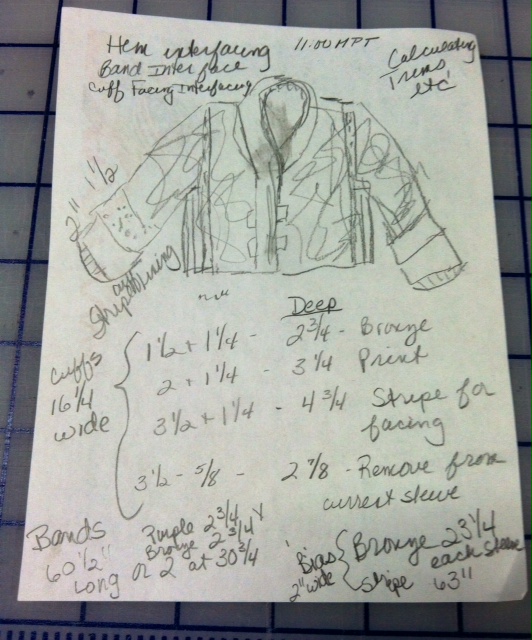 Hem interfacing
Band Interface
Cuff Facing Interfacing
11:00 MPT
Calculating
Trims
etc
2" 1 1/2
cuff
Stripe lining
Deep
1 1/2 + 1 1/4 - 2 3/4 - Bronze
2 + 1 1/4 - 3 1/4 Print
3 1/2 + 1 1/4 - 4 3/4 Stripe for
facing
3 1/2 - 5/8 - 2 7/8 - Remove from
current sleeve
Cuffs
16 1/4
wide
Bands
60 1/2"
Long
Purple 2 3/4
Bronze 2 3/4
or 2 at 30 3/4
Bias
2" wide
Bronze 23 1/4
each sleeve
Stripe 63"